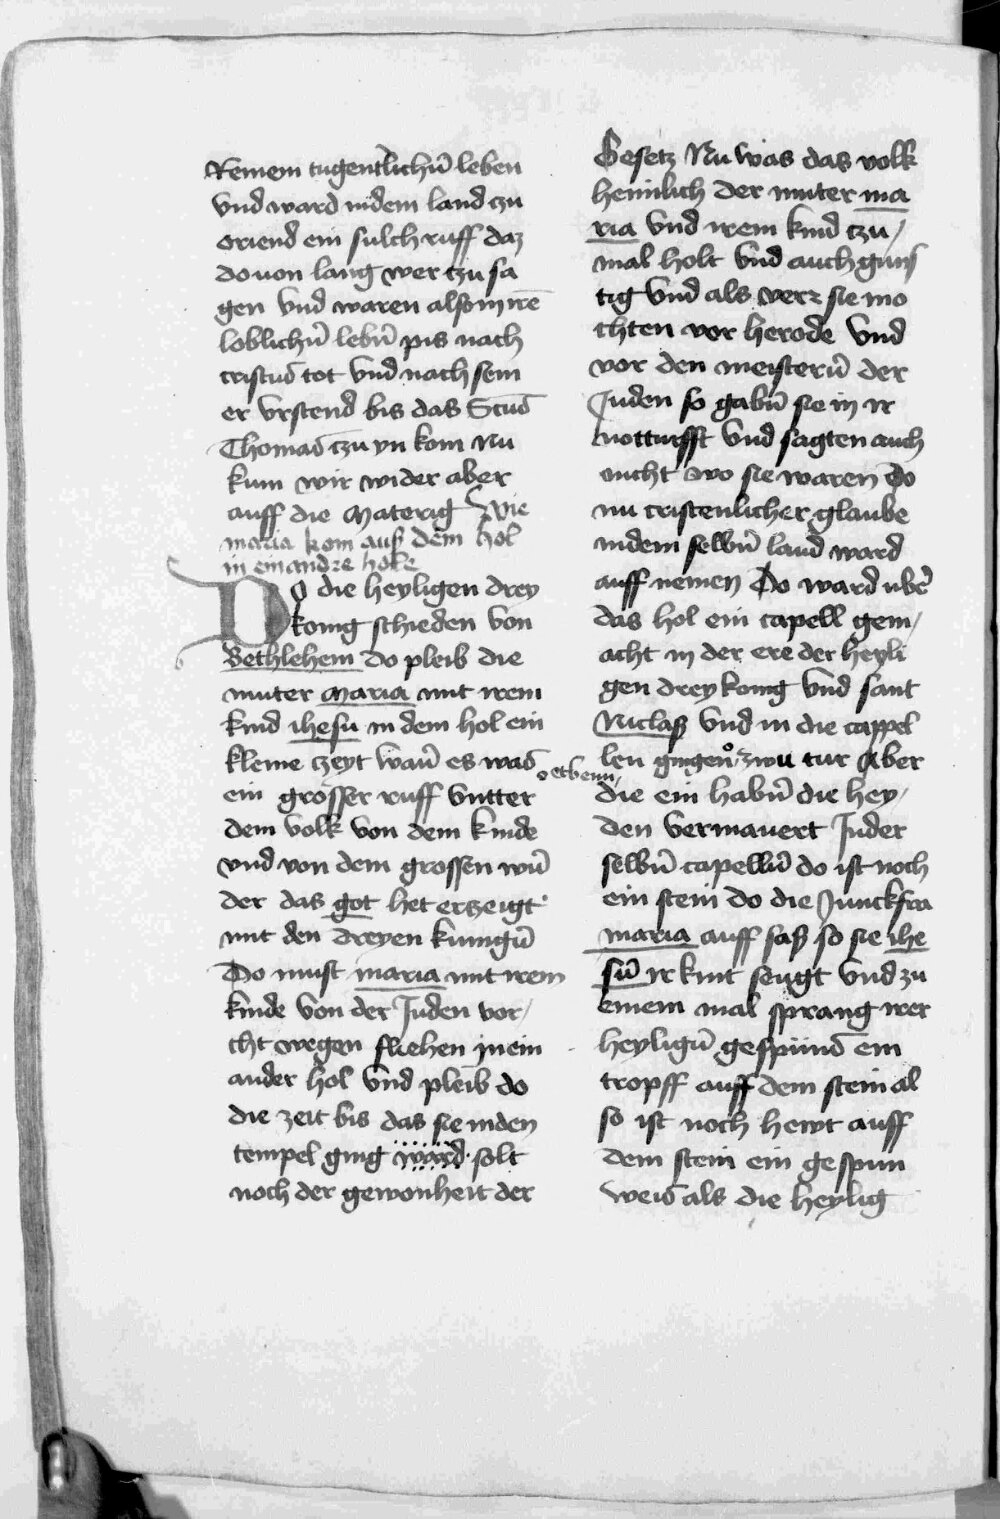 Reinem tugentlichen̄ leben
vnd ward in dem land czu
oriend ein sulch ruff daz
do uon lang wer tzu sa
gen vnd waren also in irē
loblichen̄ leben̄ pis nach
cristus tot vnd nach sein
er vrstend bis das Sctus
Thomas tzu yn kom Nu
kum wir wider aber
auff die Materig Wie
maria kom auß dem hol
in ein andre hole
Do die heyligen drey
konig schieden von
Bethlehem do pleib die
muter Maria mit irem
kind ihesu in dem hol ein
kleine czeyt wan̄ es was
ein grosser ruff vntter
dem volk von dem kinde
vnd von dem grossen wun̄
der das got het erczeigt
mit den dreyen kunigen̄
Do must maria mit irem
kinde von der Juden vor/
cht wegen fliehen in ein
ander hol vnd pleib do
die zeit bis das sie in den
tempel ging ward solt
noch der gewonheit der
Gesetz Nu was das volk
heimlich der muter ma
ria vnd irem kind czu/
mal holt vnd auch guns
tig vnd als verr sie mo
chten vor herode vnd
vor den meisteren̄ der
Juden so gaben̄ sie in ir
notturfft vnd sagten auch
nicht wo sie waren Do
nu cristenlicher glaube
in dem selben̄ land ward
auff nemen Do ward uber̄
das hol ein capell gem/
acht in der ere der heyli
gen drey konig vnd sant
Niclaß vnd in die cappel
len gingen zwu tur Aber
die ein haben̄ die hey/
den vermauert In der
selben̄ capellen̄ do ist noch
ein stein do die Junckfra
maria auff saß so sie ihe
sum̄ ir kint seugt vnd zu
einem mal sprang irer
heyligen̄ gespuns ein
tropff auff dem stein al
so ist noch hewt auff
dem stein ein gespun
weis als die heylig